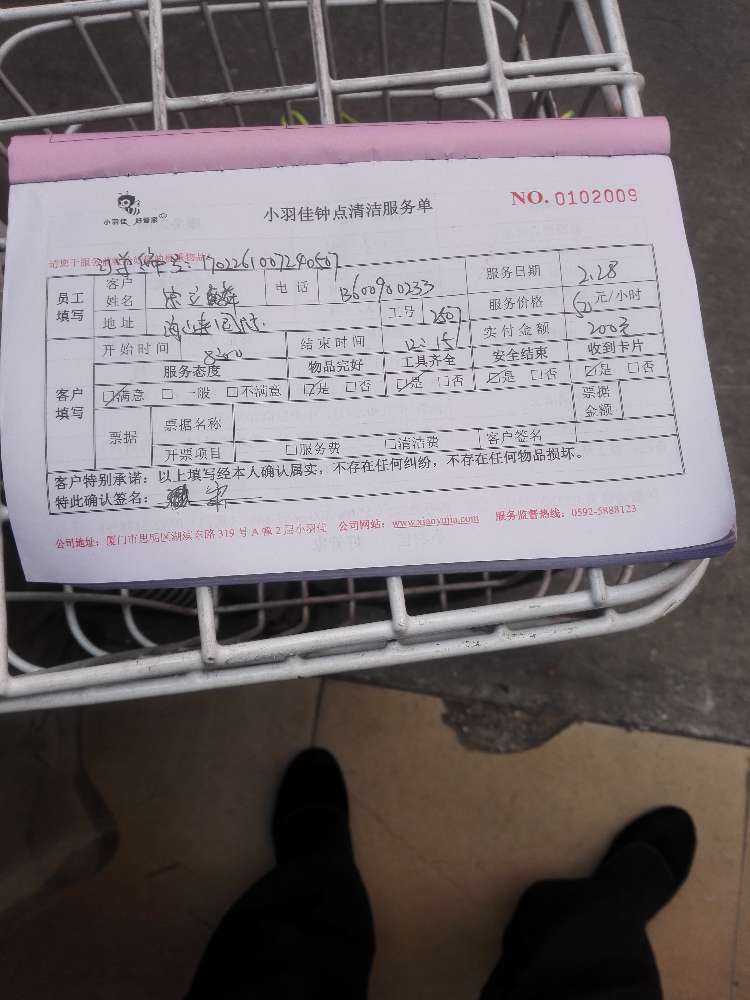 小羽佳 好管家
小羽佳钟点清洁服务单
NO. 0102009
170226100724050
员工填写
客户姓名
电话 13600900233
服务日期 2.28
地址
工号 250
服务价格 50元/小时
客户填写
开始时间
结束时间 12:15
实付金额 200元
服务态度 物品完好 工具齐全 安全结束 收到卡片
☑满意 □一般 □不满意 ☑是 □否 ☑是 □否 ☑是 □否 ☑是 □否
票据 票据名称 票据金额
开票项目 □服务费 □清洁费 客户签名
客户特别承诺：以上填写经本人确认属实，不存在任何纠纷，不存在任何物品损坏。
特此确认签名：
公司地址：厦门市思明区湖滨东路319号A幢2层小羽佳 公司网站：www.xiaoyujia.com 服务监督热线：0592-5888123